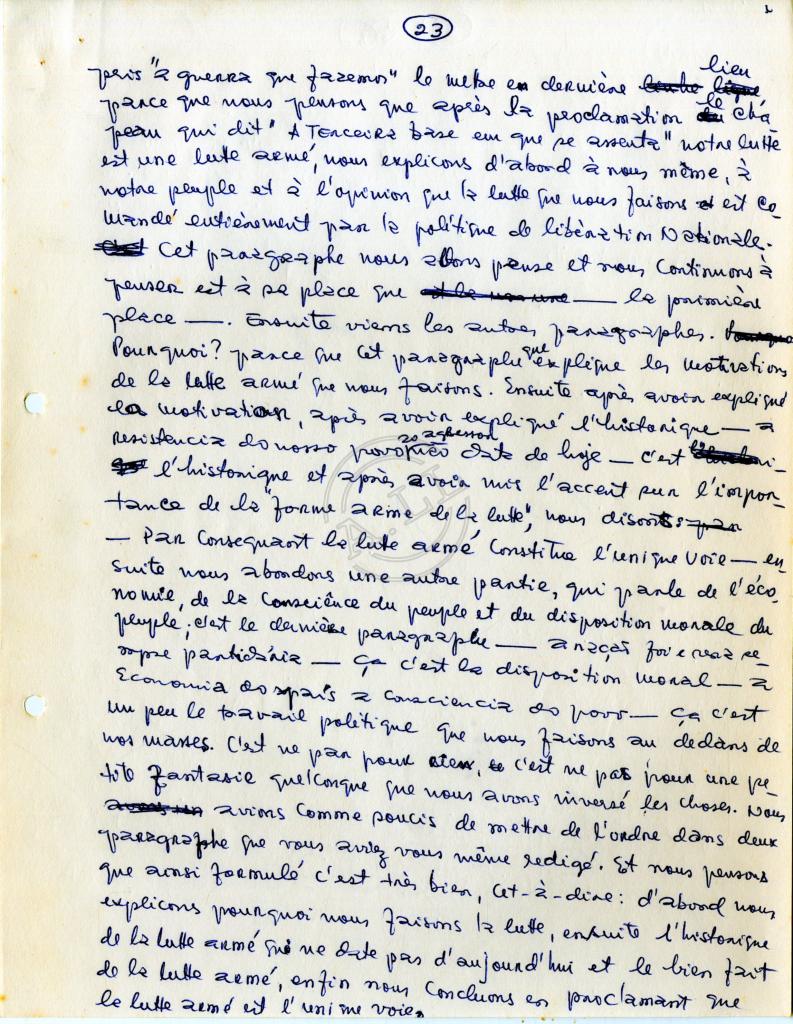 23
pris "a guerra que fazemos" le metre en dernière lieu
parce que nous pensons que après la proclamation le cha-
peau qui dit "A Terceira base em que se assenta" notre lutte
est une lutte armé, nous explicons d'abord à nous même, à
notre peuple et à l'opinion que la lutte que nous faisons est co-
mandé entièrement par la politique de libération Nationale.
Cet paragraphe nous allons pense et nous continuons à
penser est à sa place que — la première
place —. Ensuite viens les autres paragraphes.
Pourquoi? parce que cet paragraphe que explique les motivations
de la lutte armé que nous faisons. Ensuite après avoir expliqué
la motivation, après avoir expliqué l'historique — a
resistencia do nosso povo ao agressor não date de hoje — c'est
l'historique et après avoir mis l'accent sur l'impor-
tance de la "forme arme de la lutte", nous disons
— Par consequant la lute armé constitue l'unique voie — en-
suite nous abondons une autre partie, qui parle de l'éco-
nomie, de la consciênce du peuple et du disposition morale du
peuple; c'est le dernière paragraphe — a naçaõ foi creaz se-
mpre partidária — ça c'est la disposition moral — a
Economia do pais a consciencia do povo — ça c'est
un peu le travail politique que nous faisons au dedans de
nos masses. C'est ne pas pour rien, c'est ne pas pour une pe-
tite fantasie quelconque que nous avons inversé les choses. Nous
avions comme soucis de mettre de l'ordre dans deux
paragraphe que vous aviez vous même redigé. Et nous pensons
que ainsi formulé c'est très bien, cet-à-dire: d'abord nous
explicons pourquoi nous faisons la lutte, ensuite l'historique
de la lutte armé qui ne date pas d'aujourd'hui et le bien fait
de la lutte armé, enfin nous concluons en proclamant que
la lutte armé est l'unique voie.